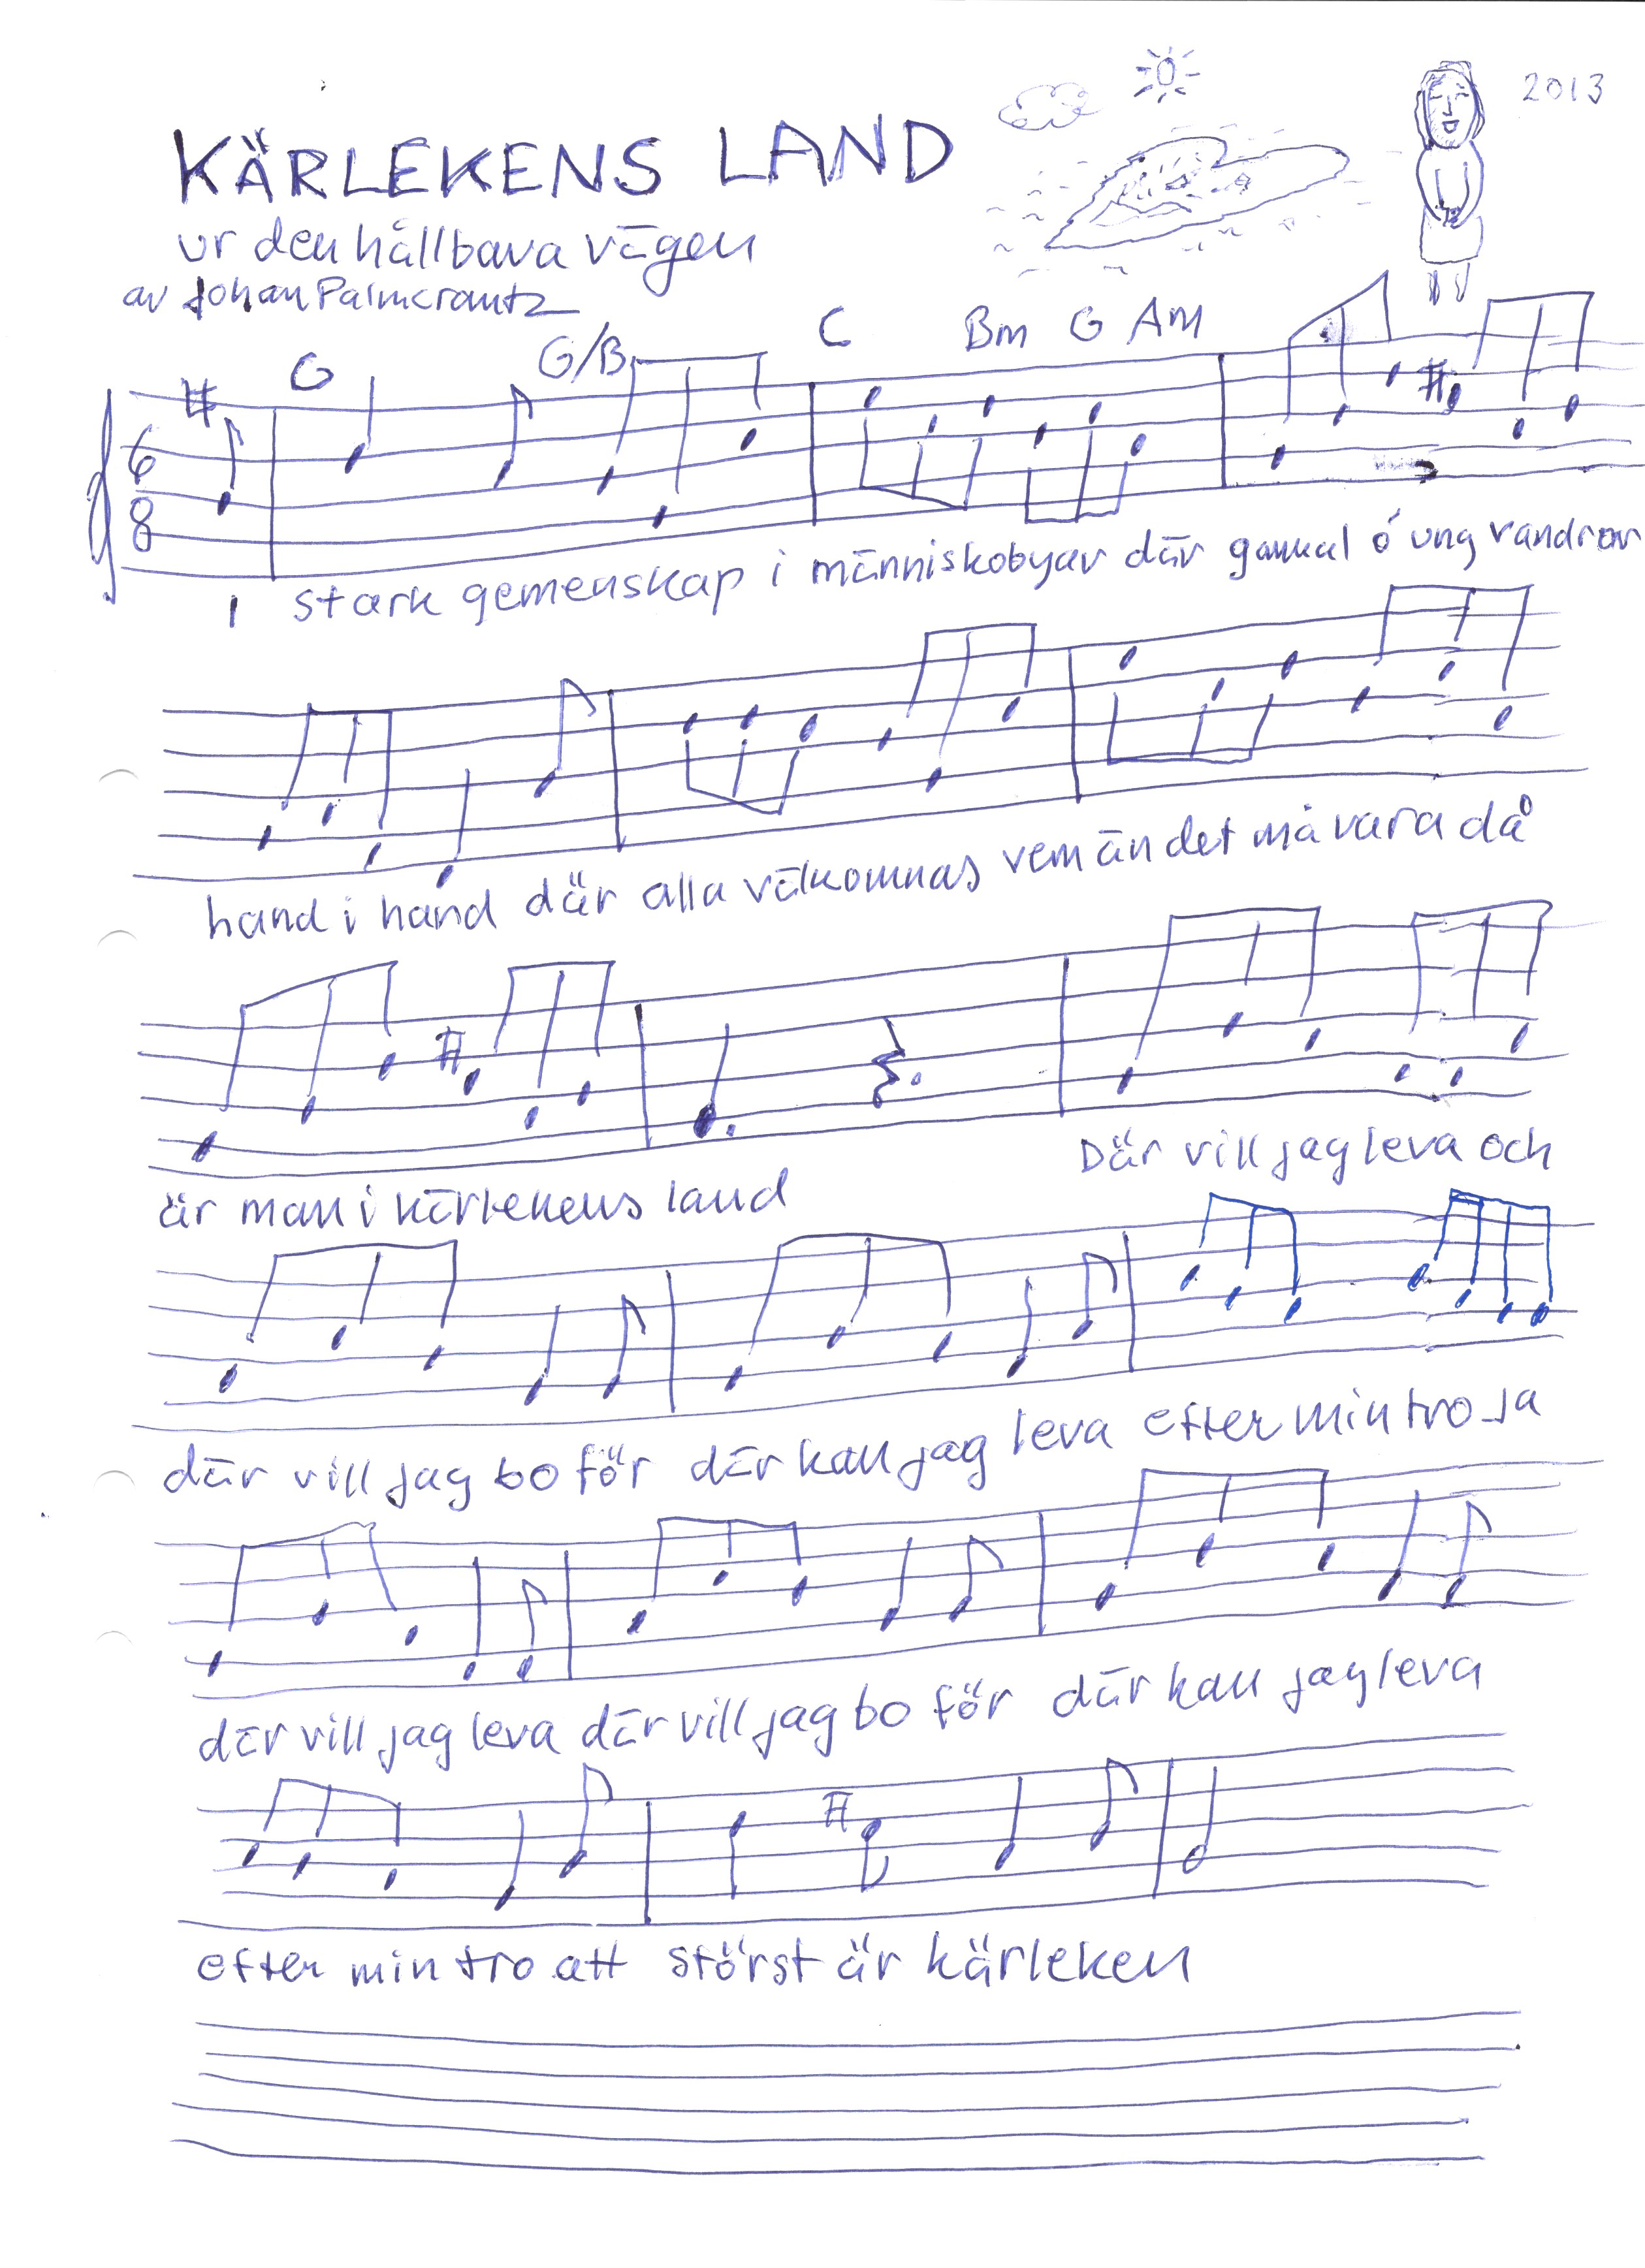 2013
KÄRLEKENS LAND
ur den hållbara vägen
av Johan Palmcrantz
G G/B C Bm G Am
6
8
I stark gemenskap i människobyar där gammal ó ung vandrar
hand i hand där alla välkomnas vem än det må vara då
är man i kärlekens land Där vill jag leva och
där vill jag bo för där kan jag leva efter min tro ja
där vill jag leva där vill jag bo för där kan jag leva
efter min tro att störst är kärleken